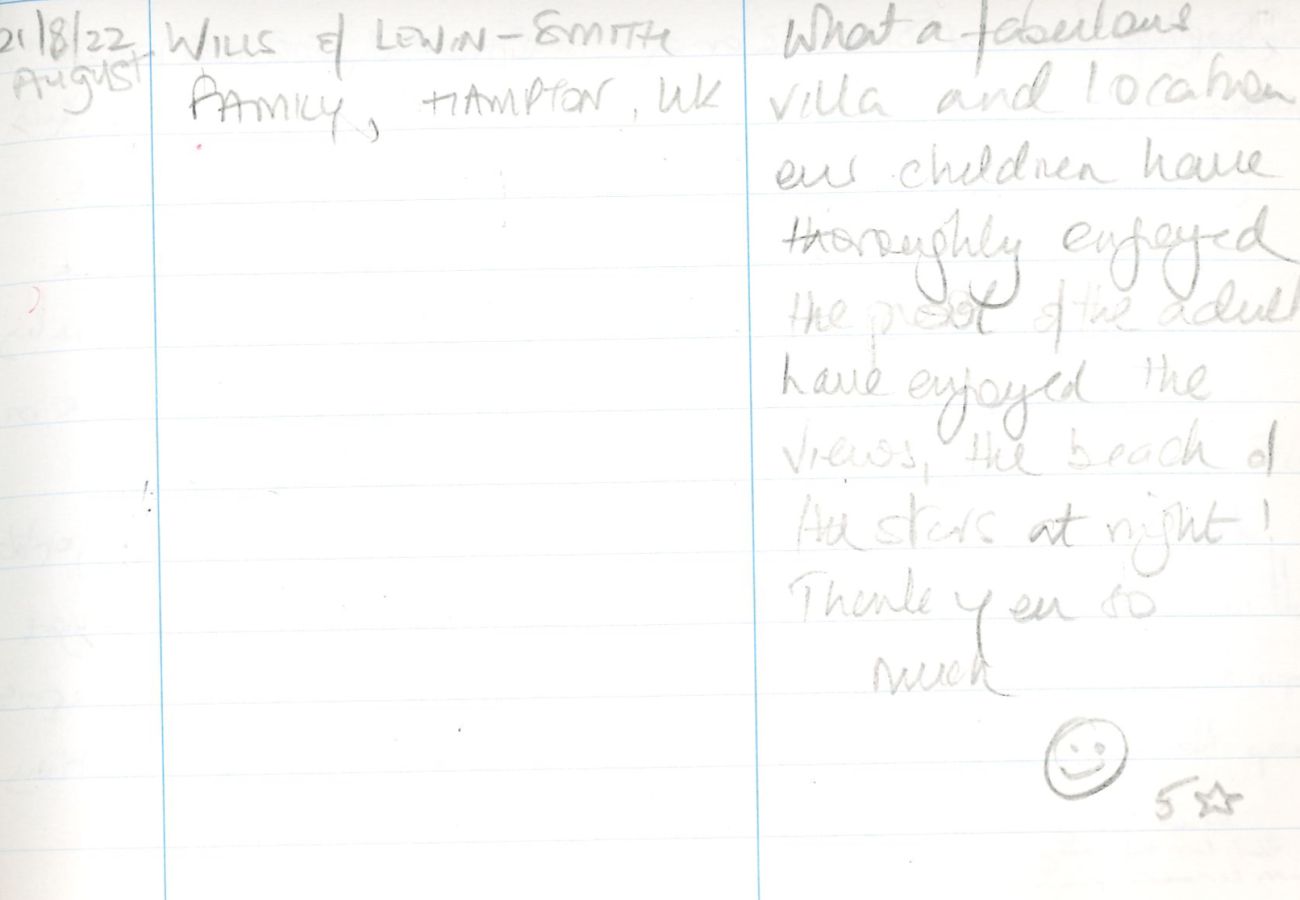 21/8/22 WILLS & LEWIN-SMITH What a fabulous
August FAMILY, HAMPTON, UK villa and location
our children have
thoroughly enjoyed
the pool & the adult
have enjoyed the
views, the beach &
the stars at night!
Thank you so
much
5☆